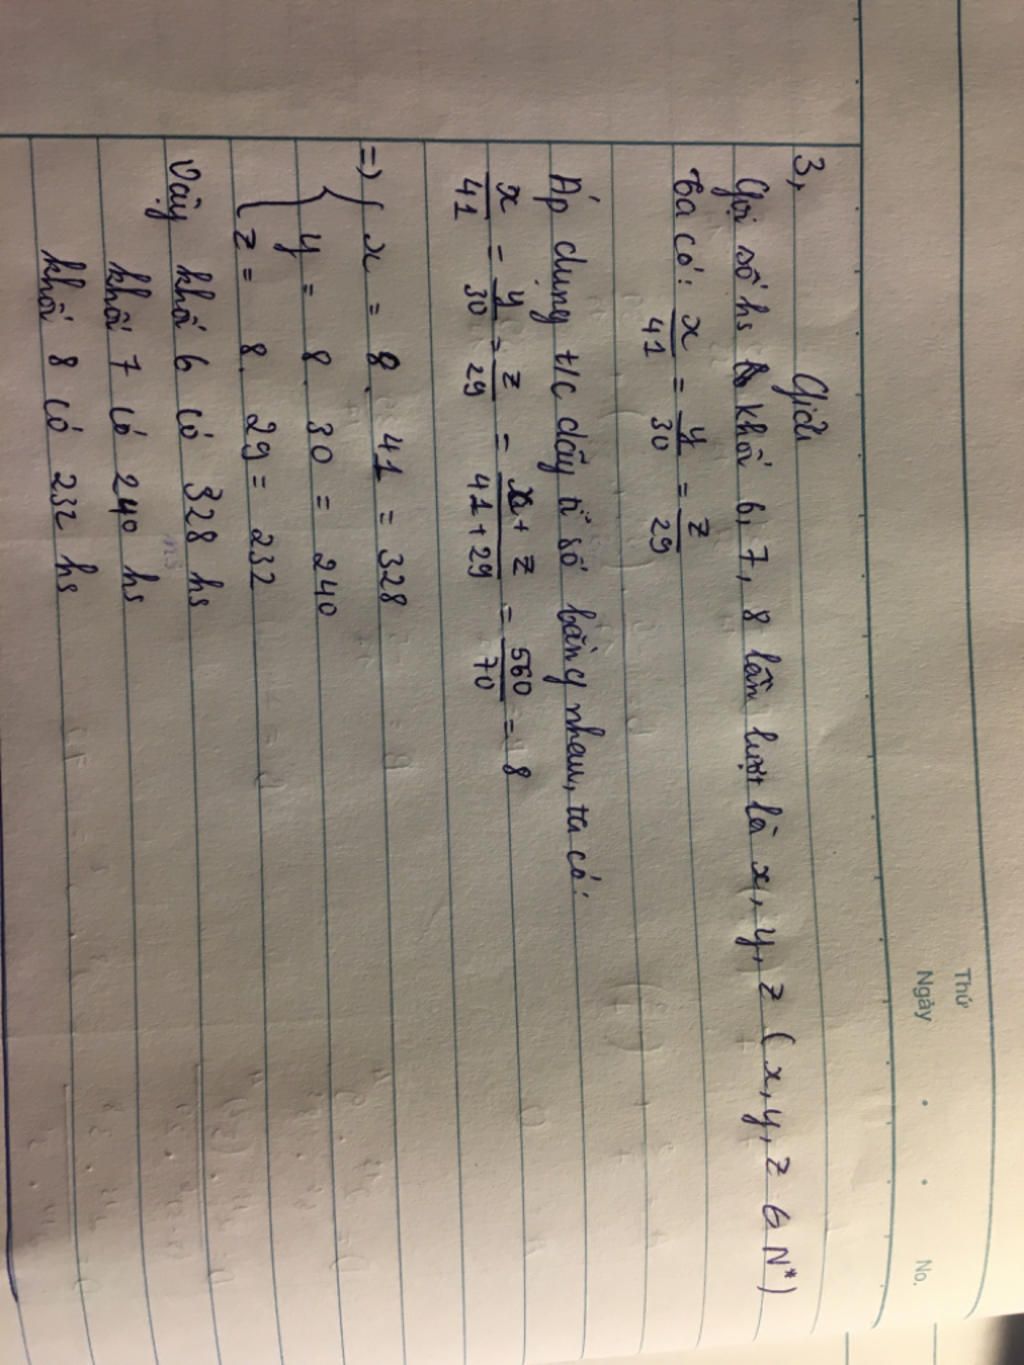 Thứ
Ngày . . No.
3, Giải
Gọi số hs khối 6, 7, 8 lần lượt là x, y, z ( x, y, z ∈ N*)
Ta có: x/41 = y/30 = z/29
Áp dụng t/c dãy tỉ số bằng nhau, ta có:
x/41 = y/30 = z/29 = x + z/41 + 29 = 560/70 = 8
=> { x = 8 . 41 = 328
y = 8 . 30 = 240
z = 8 . 29 = 232
Vậy khối 6 có 328 hs
khối 7 có 240 hs
khối 8 có 232 hs